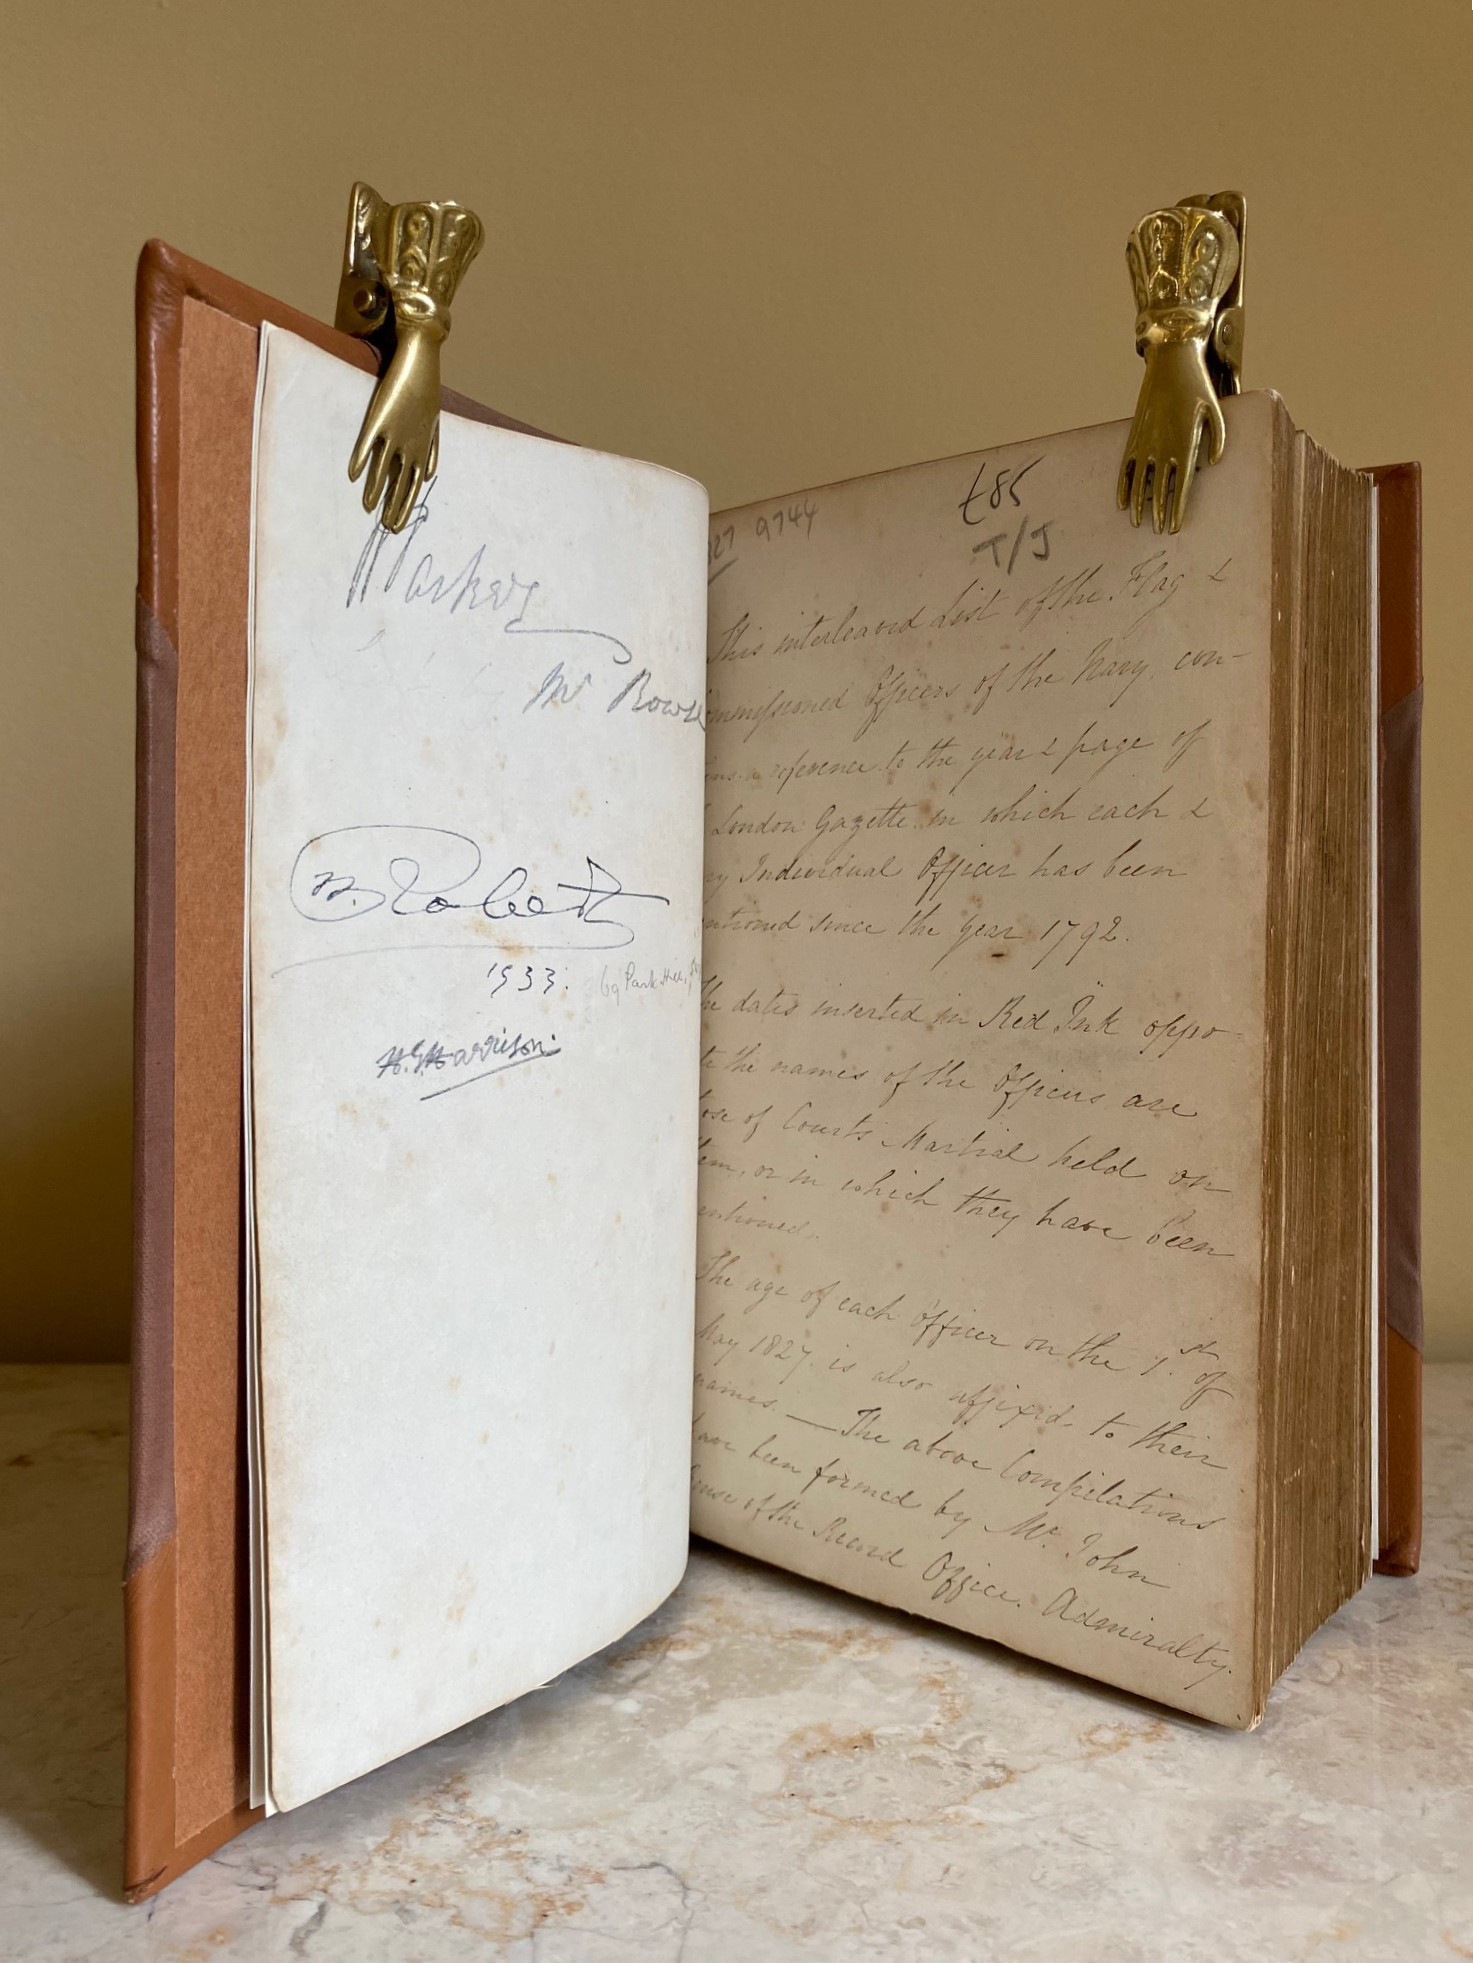 Parker
Mr Rowse
B. Roberts
1933.
69 Park Hill,
H.G. Harrison.
27 9744
£85
T/J
This interleaved List of the Flag &
mmissioned Officers of the Navy, con-
ins a reference to the year & page of
London Gazette in which each &
ry Individual Officer has been
ntioned since the year 1792.
he dates inserted in Red Ink oppo-
te the names of the Officers are
ose of Courts Martial held on
em, or in which they have been
entioned.
The age of each Officer on the 1st of
May 1827. is also affixed to their
names. — The above Compilations
ave been formed by Mr. John
of the Record Office. Admiralty.